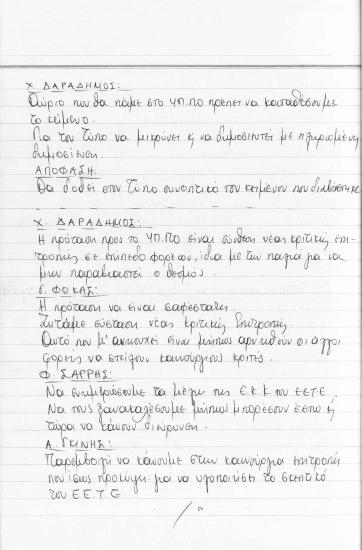 Χ. ΔΑΡΑΔΗΜΟΣ:
Αύριο που θα πάμε στο ΥΠ.ΠΟ πρέπει να καταθέσουμε
το κείμενο.
Για τον Τύπο να μικρύνει ή να δημοσιευτεί με πληρωμένη
δημοσίευση.
ΑΠΟΦΑΣΗ:
Θα δοθεί στον Τύπο συνοπτικό του κειμένου που διαβάστηκε
Χ. ΔΑΡΑΔΗΜΟΣ:
Η πρόταση προς το ΥΠ.ΠΟ είναι σύνθεση νέας κριτικής επι-
τροπής σε επίπεδο φορέων, ίδια με την παλιά για να
μην παραβιαστεί ο θεσμός.
ΦΩΚΑΣ:
Η πρόταση να είναι σαφέστατη.
Ζητάμε σύσταση νέας κριτικής Επιτροπής.
Αυτό που μ' ανησυχεί είναι μήπως αρνηθούν οι άλλοι
φορείς να στείλουν καινούργιους κριτές.
Φ. ΣΑΡΡΗΣ:
Να ενημερώσουμε τα μέλη της Ε.Κ.Κ του ΕΕΤΕ.
Να τους ξανακαλέσουμε μήπως μπορέσουν έστω κι
τώρα να κάνουν διεύρυνση.
Α. ΓΚΙΝΗΣ:
Παρέμβαση να κάνουμε στην καινούργια επιτροπή
που ίσως προκύψει για να υλοποιήσει το σκεπτικό
του Ε.Ε.Τ.Ε